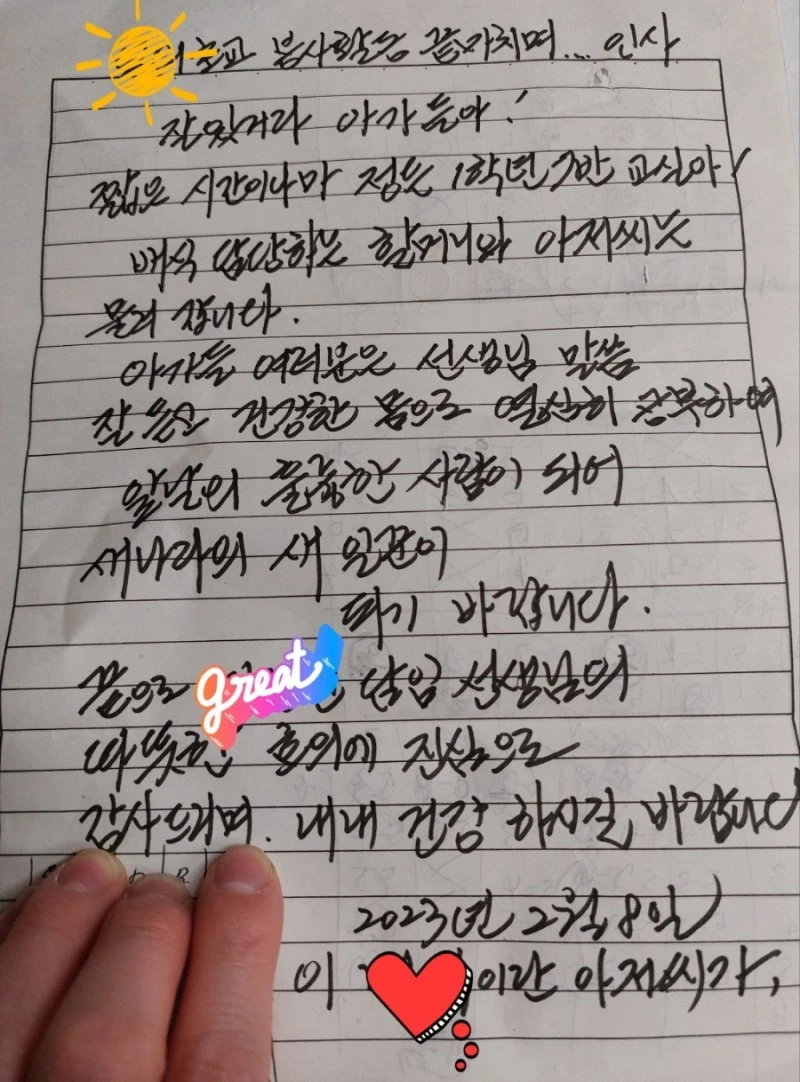 초교 봉사활동 끝마치며... 인사
잘있거라 아가들아!
짧은 시간이나마 정든 1학년 7반 교실아!
배식 담당하는 할머니와 아저씨는
물러 갑니다.
아가들 여러분은 선생님 말씀
잘 듣고 건강한 몸으로 열심히 공부하여
앞날의 훌륭한 사람이 되어
새나라의 새 일꾼이
되기 바랍니다.
끝으로 great 담임 선생님의
따뜻한 호의에 진심으로
감사드리며. 내내 건강 하시길 바랍니다
2023년 2월 8일
이 이란 아저씨가,